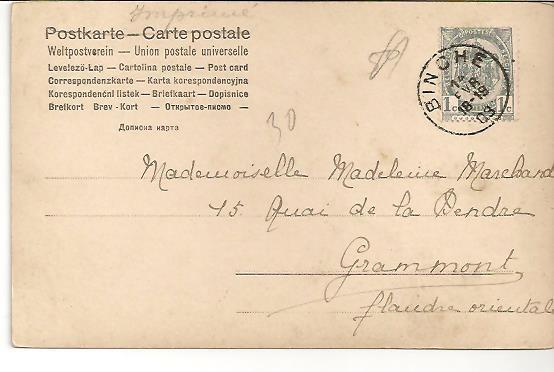 Imprimé
Postkarte — Carte postale
Weltpostverein — Union postale universelle
Levelező-Lap — Cartolina postale — Post card
Correspondenzkarte — Karta korespondencyjna
Korespondenční listek — Briefkaart — Dopisnice
Brefkort Brev-Kort — Открытое-письмо —
Дописна карта
POSTES
BINCHE
1 C 1 C
30
Mademoiselle Madeleine Marchand
15 Quai de la Dendre
Grammont
flandre orientale